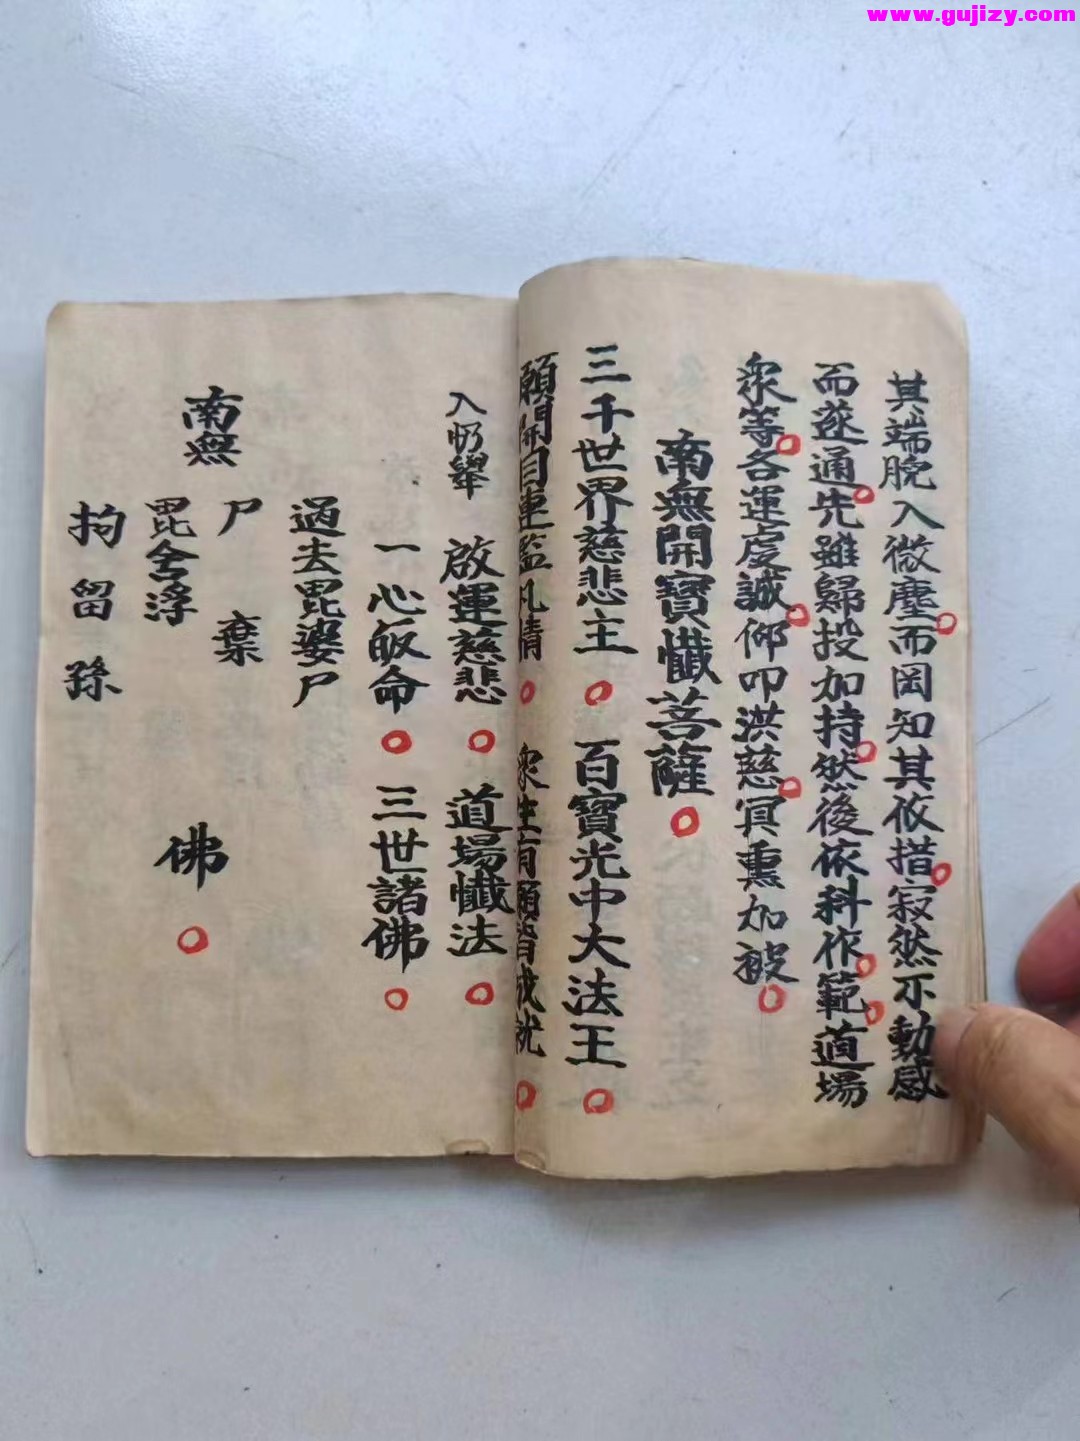 www.gujizy.com
其端脫入微塵而罔知其依措寂然不動感
而遂通先雖歸投加持然後依科作範道場
衆等各運虔誠仰叩洪慈冥熏加被
南無開寶懺菩薩
三千世界慈悲主 百寶光中大法王
願開目連監凡情 衆生有願皆成就
入忏舉 啟運慈悲 道場懺法
一心皈命 三世諸佛
過去毘婆尸
南無 尸棄 佛
毘舍浮
拘留孫